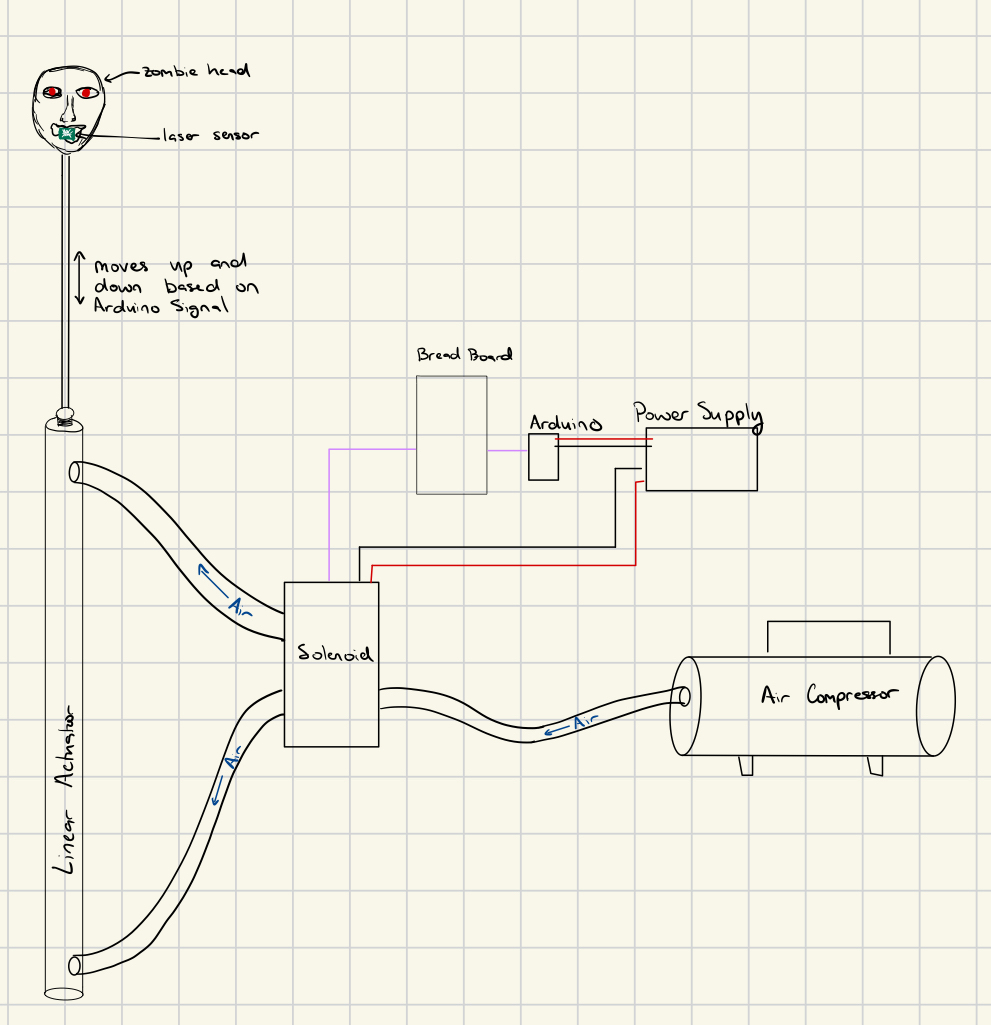 Zombie head
laser sensor
moves up and
down based on
Arduino Signal
Bread Board
Arduino
Power Supply
Air
Solenoid
Air Compressor
Air
Air
Linear Actuator